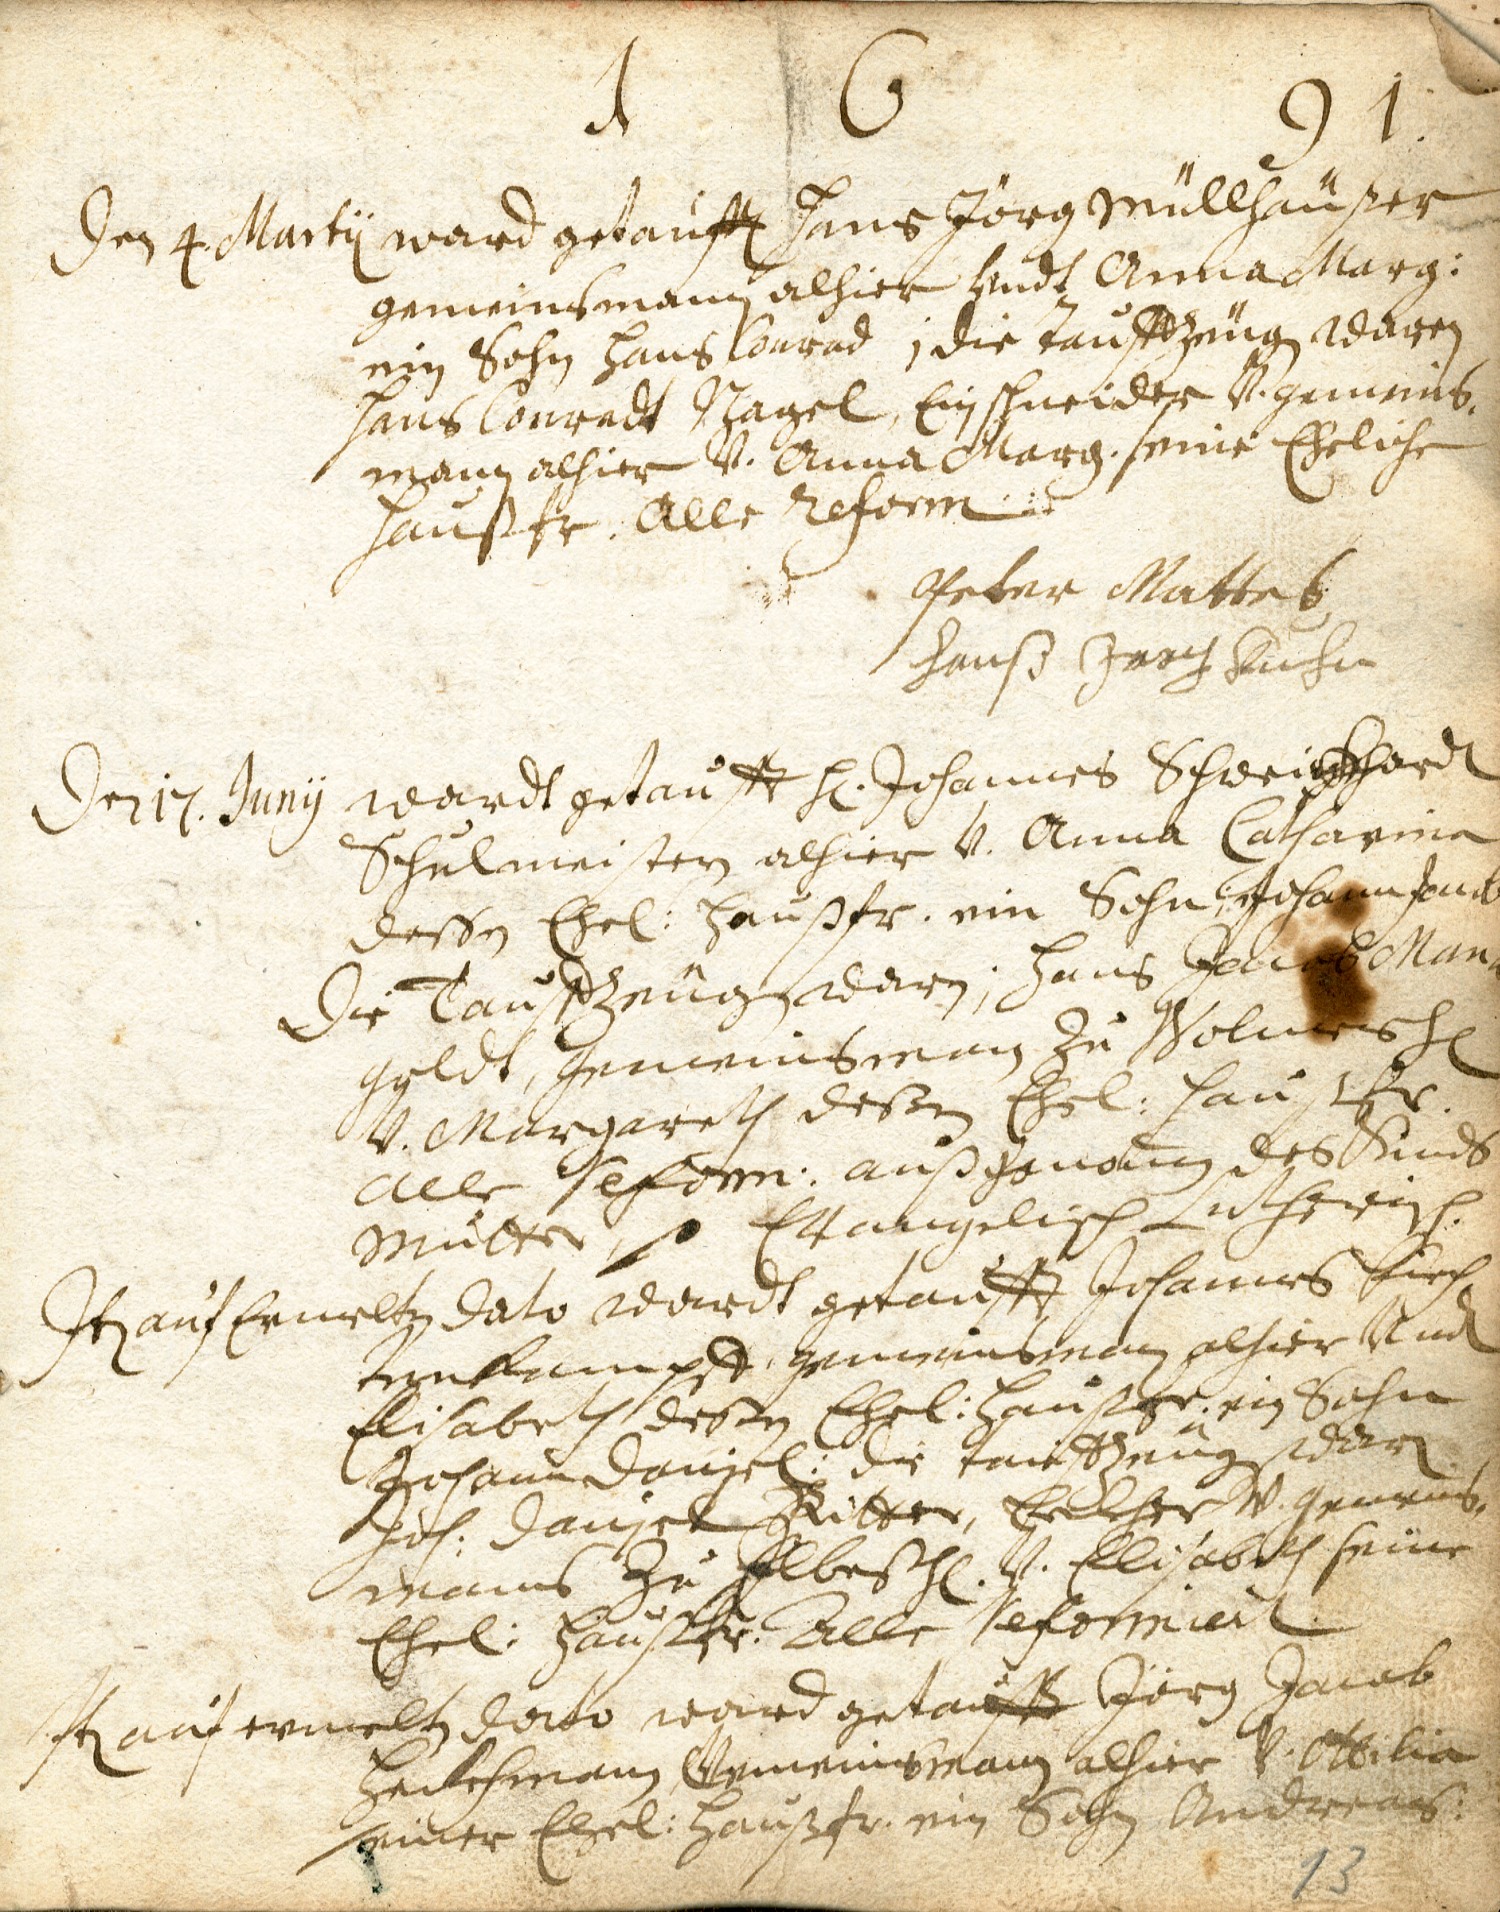 1 6 91.
Den 4. Martij ward getaufft Hans Jörg Müllhäußer
gemeinsmann alhier undt Anna Marg:
ein Sohn Hans Conrad ; die tauffzeug waren
Hans Conradt Nagel, Ein schneider V. gemeins-
mann alhier V. Anna Marg. seine Eheliche
Haußfr. Alle reform
Peter Mattes
Hanß Jerg Kuhn
Den 17. Junij wardt getaufft H. Johannes Schweickhardt
Schulmeistern alhier V. Anna Catharina
dessen Ehel: Haußfr. ein Sohn, Johann Jacob
Die Tauffzeugen waren; Hans Jacob Man-
goldt, Gemeinsmann zu Wolmersh
V. Margareth dessen Ehel: Haußfr.
Alle reform: außgenomen des Kinds
Mutter, Evangelisch Lutherisch.
It auf Ermelten dato wardt getaufft Johannes
gemeinsmann alhier Und
Elisabeth dessen Ehel: Haußfr. ein Sohn
Johann Daniel: die tauffzeug waren
Joh: Daniel Ritter, V. gemeins-
manns zu Ilbesh. V. Elisabeth seine
Ehel: Haußfr. Alle reformiert
It auf ermelten dato ward getaufft Jörg Jacob
Gemeinsmann alhier V. Ottilia
seiner Ehel: Haußfr. ein Sohn Andreas:
13